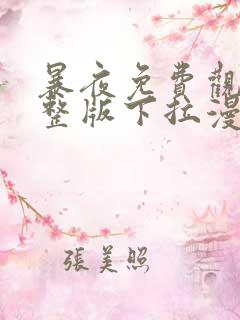 暴夜免費觀
整版下拉漫
張美照